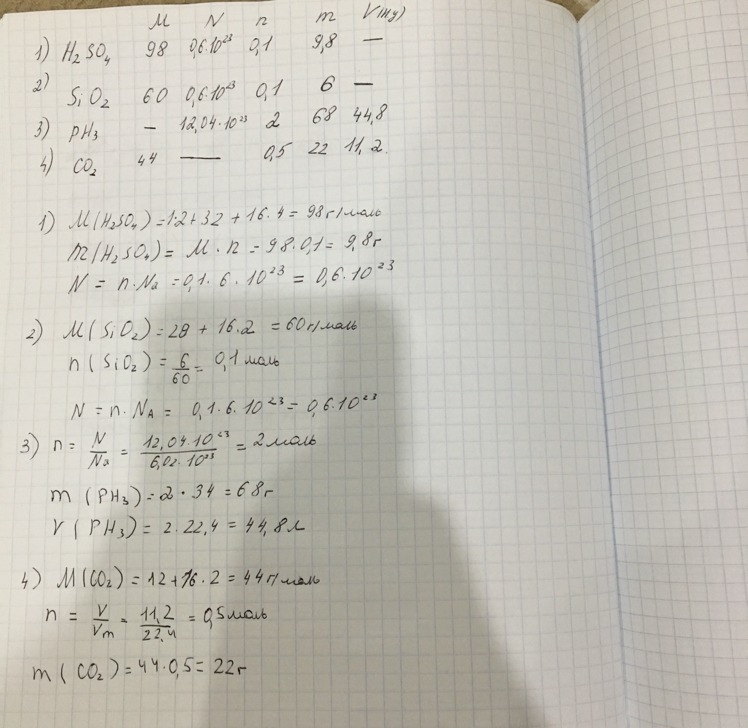 M N n m V(ну)
1) H₂SO₄ 98 0,6·10²³ 0,1 9,8 —
2) SiO₂ 60 0,6·10²³ 0,1 6 —
3) PH₃ – 12,04·10²³ 2 68 44,8
4) CO₂ 44 — 0,5 22 11,2
1) M(H₂SO₄)=1·2+32+16·4=98г/моль
m(H₂SO₄)= M·n =98·0,1=9,8г
N = n·Na =0,1·6·10²³ = 0,6·10²³
2) M(SiO₂)=28+16·2 =60г/моль
n(SiO₂)=6/60= 0,1моль
N = n·NA = 0,1·6·10²³= 0,6·10²³
3) n= N/Na = 12,04·10²³/6,02·10²³ =2моль
m(PH₃)=2·34=68г
V(PH₃)= 2·22,4=44,8л
4) M(CO₂)=12+16·2=44г/моль
n = V/Vm = 11,2/22,4 =0,5моль
m(CO₂)=44·0,5=22г